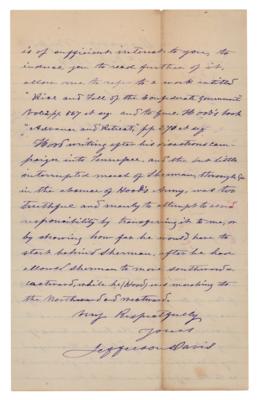 is of sufficient interest to you, to
induce you to read further of it,
allow me to refer to a work entitled
"Rise and Fall of the Confederate Government
Vol 2, pp 567 et seq and to Genl Hood's book
"Advance and Retreat, pp 270 et seq
Hood writing after his disastrous cam-
paign into Tennessee, and the but little
interrupted march of Sherman through Ga
in the absence of Hood's Army, was too
truthful and manly to attempt to avoid
responsibility by transferring it to me, or
by showing how far he would have to
start behind Sherman, after he have
allowed Sherman to move southward
eastward, while he (Hood) was marching to
the Northward and westward.
Very Respectfully
Yours
Jefferson Davis